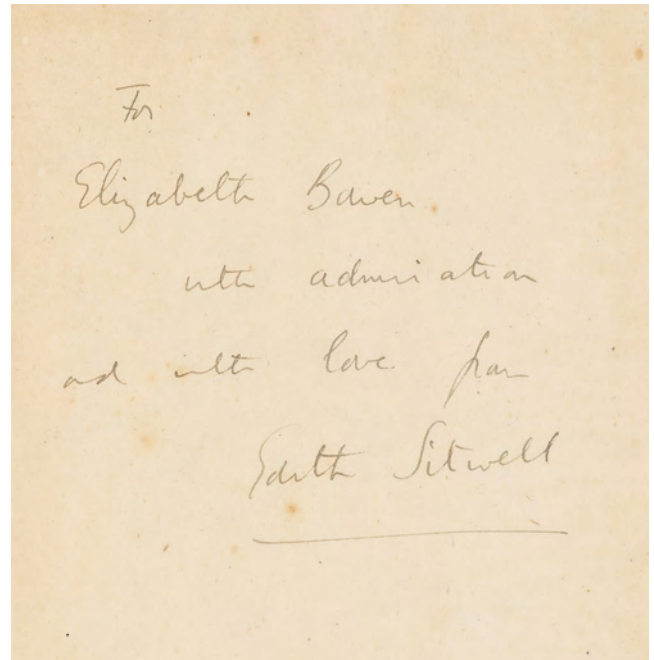 For
Elizabeth Bowen
with admiration
and with love from
Edith Sitwell